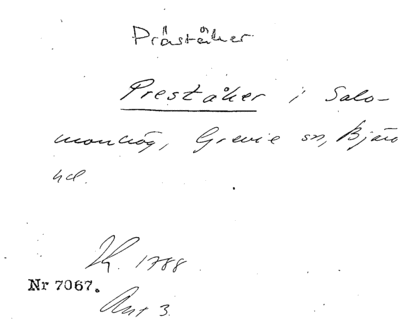 Pråståker
Preståker i Salo-
monhög, Grevie sn, Bjäre
hd.
Jk. 1788
Nr 7067.
Ant 3.